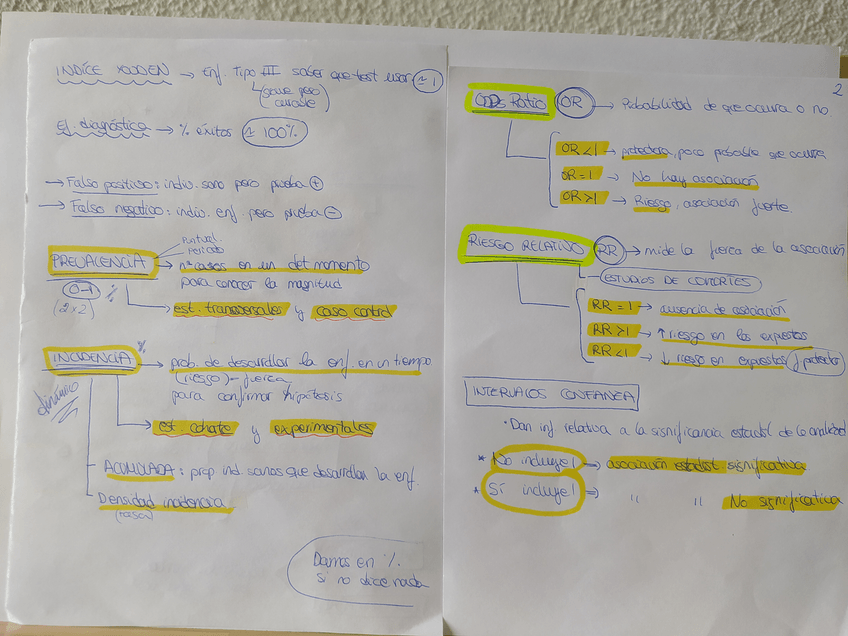 INDICE YOUDEN → Enf. Tipo III saber que test usar ≈ 1
(grave pero
curable)
El diagnóstica → % éxitos ≈ 100%
→ Falso positivo: indiv. sano pero prueba +
→ Falso negativo: indiv. enf. pero prueba -
Puntual
Periodo
PREVALENCIA → nº casos en un det momento
para conocer la magnitud
0-1 %
(2x2)
est. transversales y caso control
INCIDENCIA % → prob. de desarrollar la enf. en un tiempo
(riesgo) - fuerza
para confirmar hipótesis
dinámico
est. cohorte y experimentales
ACUMULADA: prop ind. sanos que desarrollan la enf.
Densidad incidencia
(tasa)
Damos en %
si no dice nada
2
ODDS Ratio OR → Probabilidad de que ocurra o no.
OR<1 → protectora, poco probable que ocurra
OR=1 → No hay asociación
OR>1 → Riesgo, asociación fuerte.
RIESGO RELATIVO RR → mide la fuerza de la asociación
ESTUDIOS DE COHORTES
RR=1 → ausencia de asociación
RR>1 → ↑ riesgo en los expuestos
RR<1 → ↓ riesgo en expuestos f. protector
INTERVALOS CONFIANZA
· Dan inf relativa a la significancia estadíst de la
* No incluye 1 ⇒ asociación estadíst. significativa
* Sí incluye 1 ⇒ " " No significativa